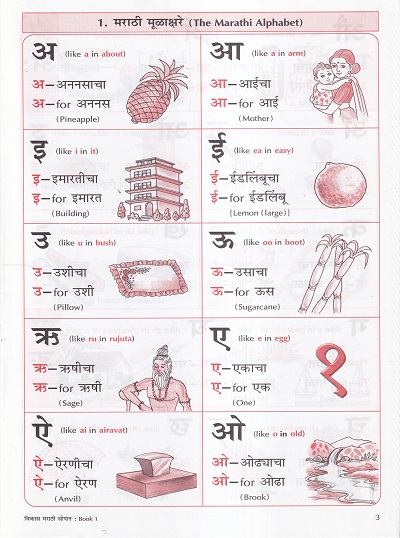 1. मराठी मूळाक्षरे (The Marathi Alphabet)
अ (like a in about)
अ–अननसाचा
अ–for अननस
(Pineapple)
आ (like a in arm)
आ–आईचा
आ–for आई
(Mother)
इ (like i in it)
इ–इमारतीचा
इ–for इमारत
(Building)
ई (like ea in easy)
ई–ईडलिंबूचा
ई–for ईडलिंबू
[Lemon (large)]
उ (like u in bush)
उ–उशीचा
उ–for उशी
(Pillow)
ऊ (like oo in boot)
ऊ–उसाचा
ऊ–for ऊस
(Sugarcane)
ऋ (like ru in rujuta)
ऋ–ऋषीचा
ऋ–for ऋषी
(Sage)
ए (like e in egg)
ए–एकाचा
ए–for एक
(One)
१
ऐ (like ai in airavat)
ऐ–ऐरणीचा
ऐ–for ऐरण
(Anvil)
ओ (like o in old)
ओ–ओढ्याचा
ओ–for ओढा
(Brook)
विकास मराठी सोपान : Book 1
3